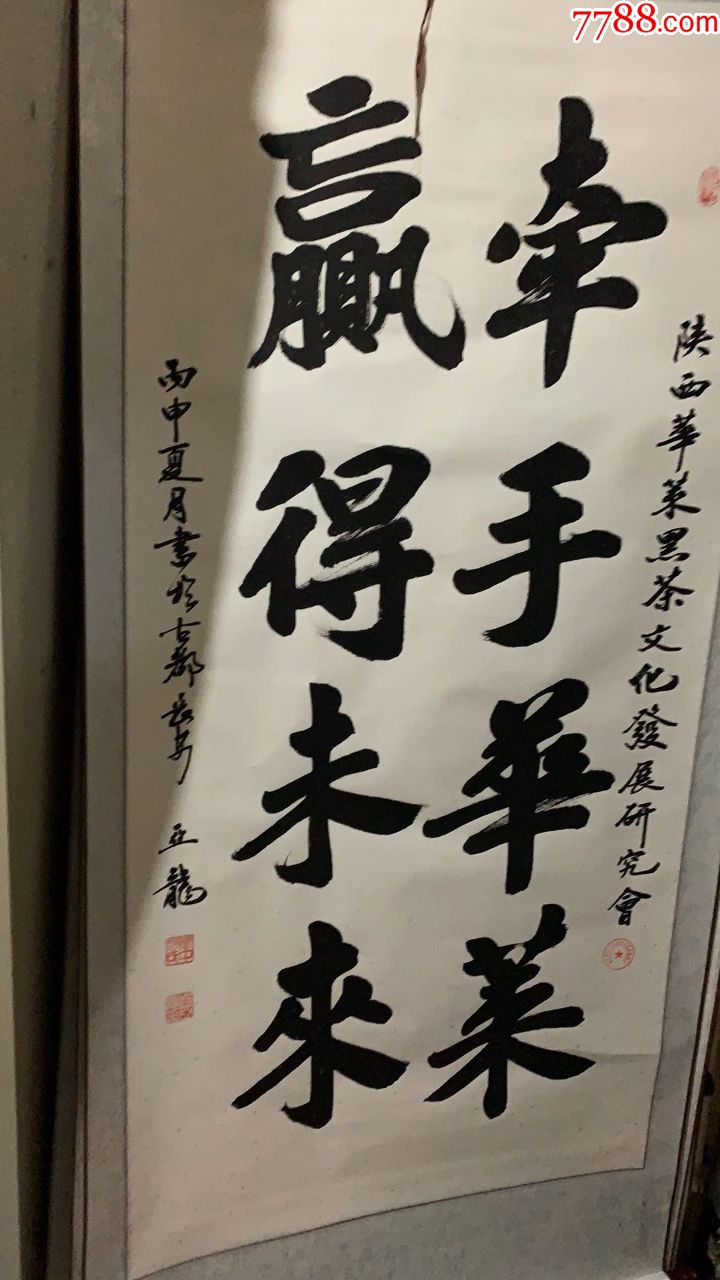 7788.com
陕西華莱黑茶文化發展研究會
牵手華莱
贏得未來
丙申夏月書於古都長安 亚龍